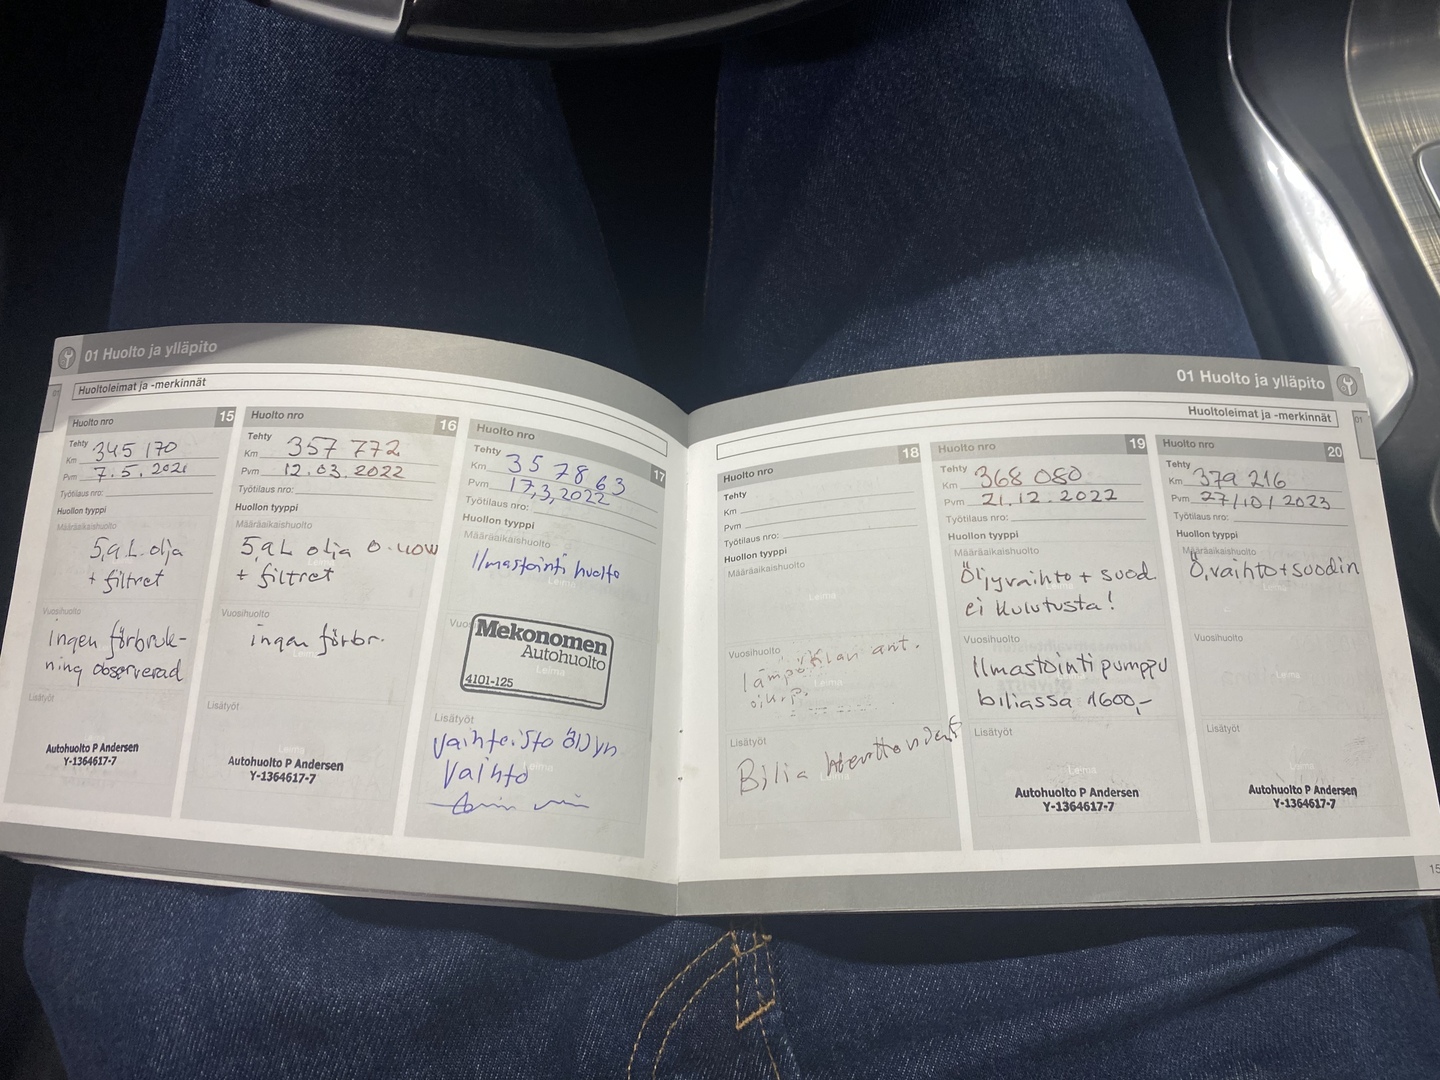 01 Huolto ja ylläpito
Huoltoleimat ja -merkinnät
Huolto nro 15
Tehty
Km 345 170
Pvm 7.5.2021
Työtilaus nro:
Huollon tyyppi
Määräaikaishuolto
5,9 L olja
+ filtret
Vuosihuolto
ingen förbruk-
ning observerad
Lisätyöt
Leima
Autohuolto P Andersen
Y-1364617-7
Huolto nro 16
Tehty
Km 357 772
Pvm 12.03.2022
Työtilaus nro:
Huollon tyyppi
Määräaikaishuolto
5,9 L olja 0-40W
+ filtret
Vuosihuolto
ingen förbr.
Lisätyöt
Autohuolto P Andersen
Y-1364617-7
Huolto nro 17
Tehty
Km 357863
Pvm 17,3,2022
Työtilaus nro:
Huollon tyyppi
Määräaikaishuolto
Ilmastointi huolto
Leima
Vuo
Mekonomen
Autohuolto
Leima
4101-125
Lisätyöt
Vaihteisto öljyn
Vaihto
Leima
01 Huolto ja ylläpito
Huoltoleimat ja -merkinnät
Huolto nro 18
Tehty
Km
Pvm
Työtilaus nro:
Huollon tyyppi
Määräaikaishuolto
Leima
Vuosihuolto
ant.
Leima
Lisätyöt
Bilia
Leima
Huolto nro 19
Tehty
Km 368 080
Pvm 21.12.2022
Työtilaus nro:
Huollon tyyppi
Määräaikaishuolto
Öljyvaihto + suod.
ei kulutusta!
Vuosihuolto
Ilmastointi pumppu
biliassa 1600,-
Lisätyöt
Leima
Autohuolto P Andersen
Y-1364617-7
Huolto nro 20
Tehty
Km 379 216
Pvm 27/10/2023
Työtilaus nro:
Huollon tyyppi
Määräaikaishuolto
Ö.vaihto+suodin
Vuosihuolto
Leima
Lisätyöt
Leima
Autohuolto P Andersen
Y-1364617-7
15